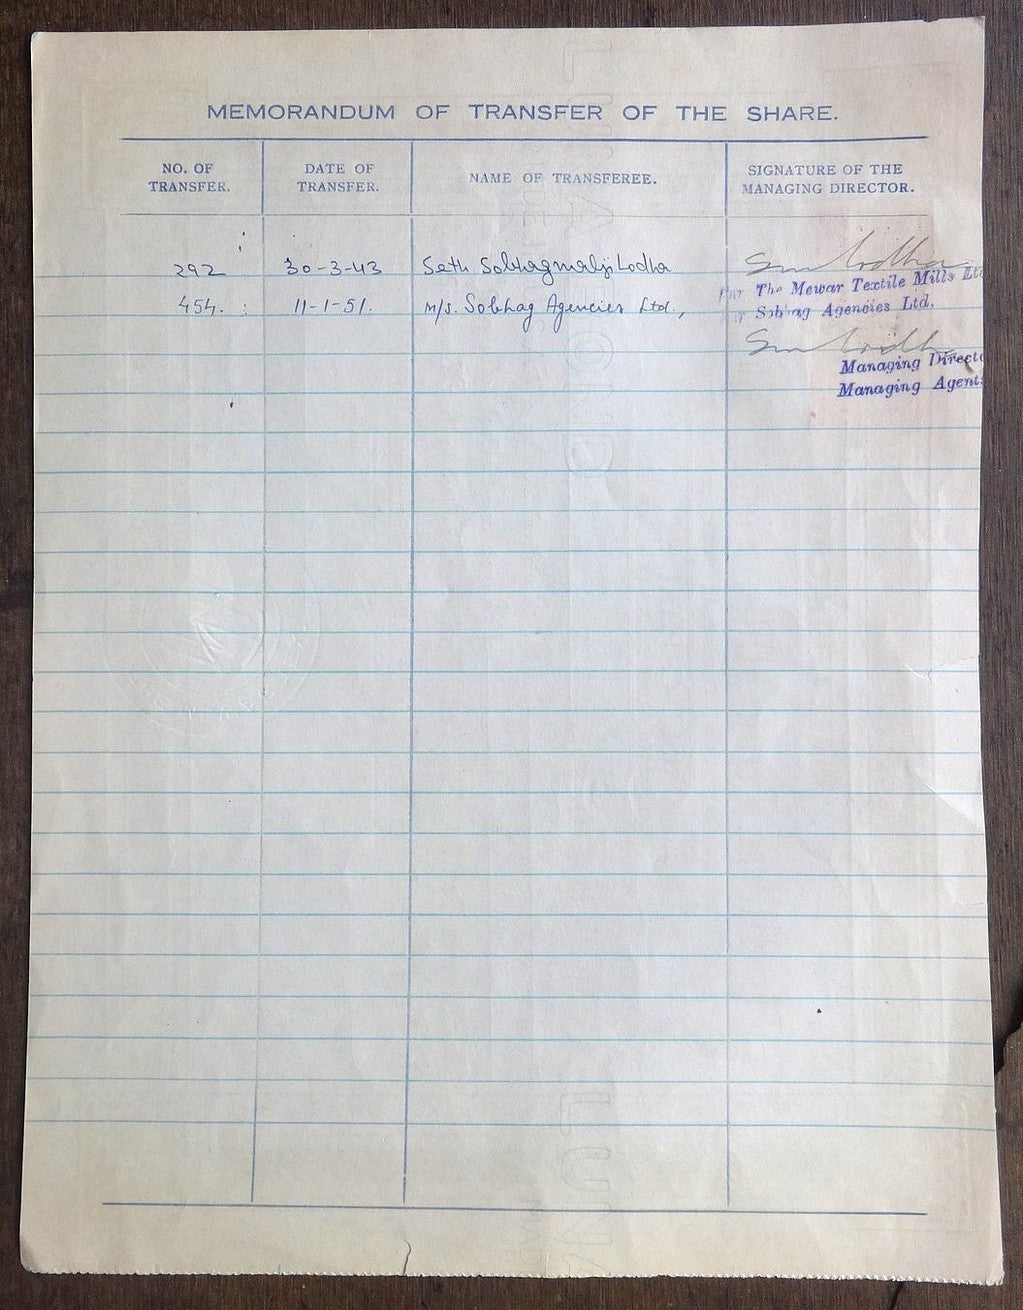 MEMORANDUM OF TRANSFER OF THE SHARE.
NO. OF TRANSFER.
DATE OF TRANSFER.
NAME OF TRANSFEREE.
SIGNATURE OF THE MANAGING DIRECTOR.
292 30-3-43 Seth Sobhagmalji Lodha
The Mewar Textile Mills Lt
454. 11-1-51. M/s. Sobhag Agencies Ltd.,
Agencies Ltd.
Managing Directo
Managing Agent